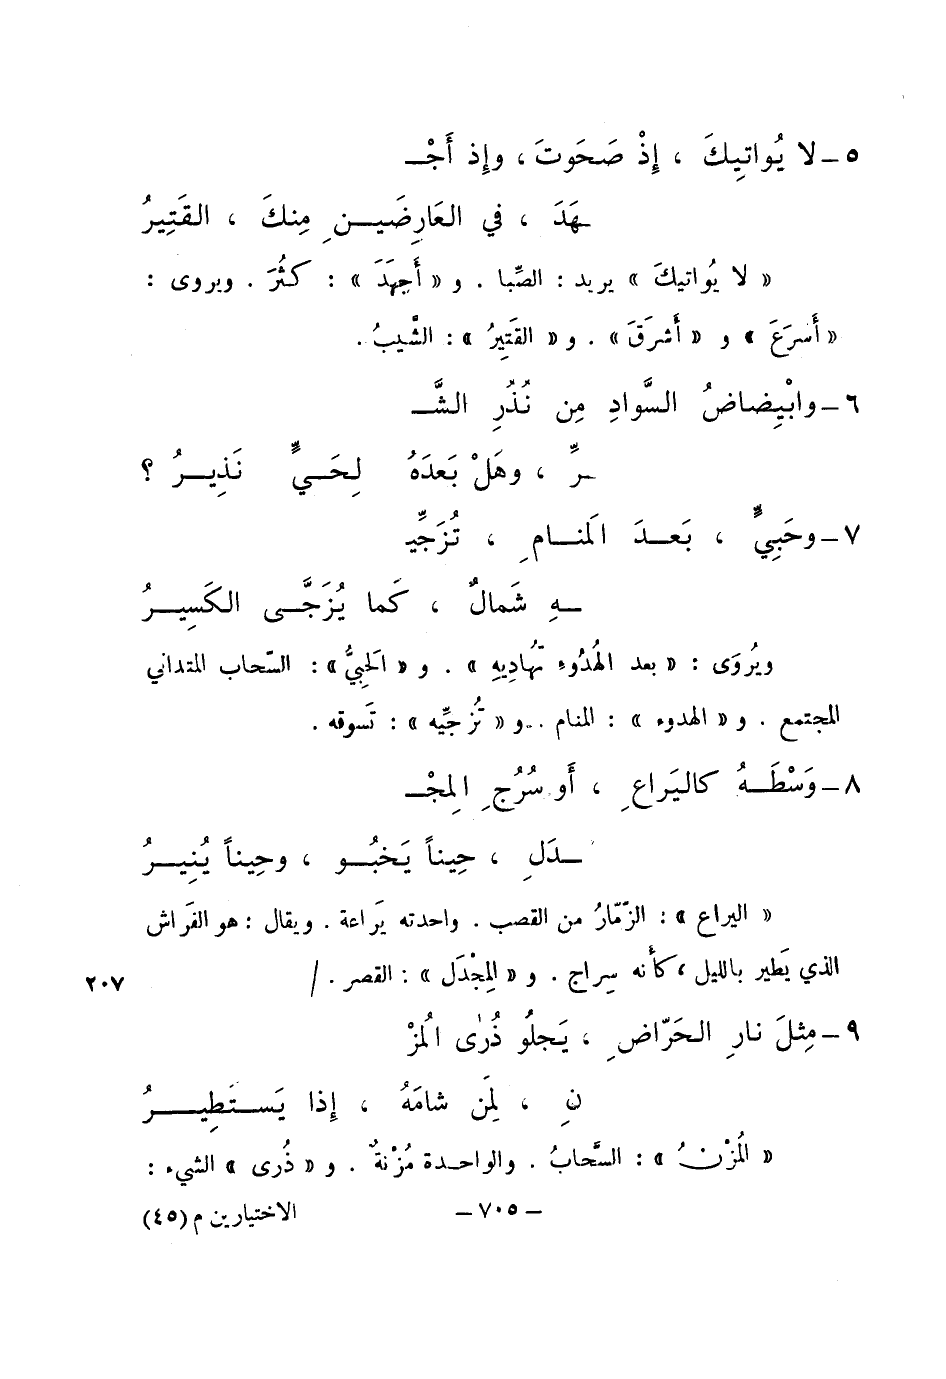 ٥ – لا يُواتِيكَ ، إِذْ صَحَوتَ ، وإِذ أَجْـ
ـهَدَ ، في العَارِضَيـنِ مِنكَ ، القَتِيرُ
« لا يُواتيكَ » يريد : الصِّبا . و « أَجهَدَ » : كثُرَ . ويروى :
« أَسرَعَ » و « أَشرَقَ » . و « القَتِيرُ » : الشَّيبُ .
٦ – وابْيِضاضُ السَّوادِ مِن نُذُرِ الشَّـ
ـرِّ ، وهَلْ بَعدَهُ لِحَـيٍّ نَذِيـرُ ؟
٧ – وحَبِيٍّ ، بَعـدَ المَنـامِ ، تُزَجِّيـ
ـهِ شَمالٌ ، كَما يُزَجَّـى الكَسِيـرُ
ويُروَى : « بعد الهُدُوءِ تُهادِيهِ » . و « الحَبِيُّ » : السّحاب المتداني
المجتمع . و « الهدوء » : المنام . و « تُزجِّيه » : تَسوقه .
٨ – وَسْطَـهُ كاليَراعِ ، أَو سُرُجِ المِجْـ
ـدَلِ ، حِيناً يَخبُـو ، وحِيناً يُنِيـرُ
« اليراع » : الزّمّارُ من القصب . واحدته يَراعة . ويقال : هو الفَراش
الذي يَطير بالليل ، كأَنه سِراج . و « المِجْدَل » : القصر . / ٢٠٧
٩ – مِثلَ نارِ الحَرّاضِ ، يَجلُو ذُرٰى المُزْ
نِ ، لِمَن شامَهُ ، إِذا يَسـتَطِيـرُ
« المُزْنُ » : السَّحابُ . والواحـدة مُزْنةٌ . و « ذُرى » الشيء :
– ٧٠٥ – الاختيارين م (٤٥)